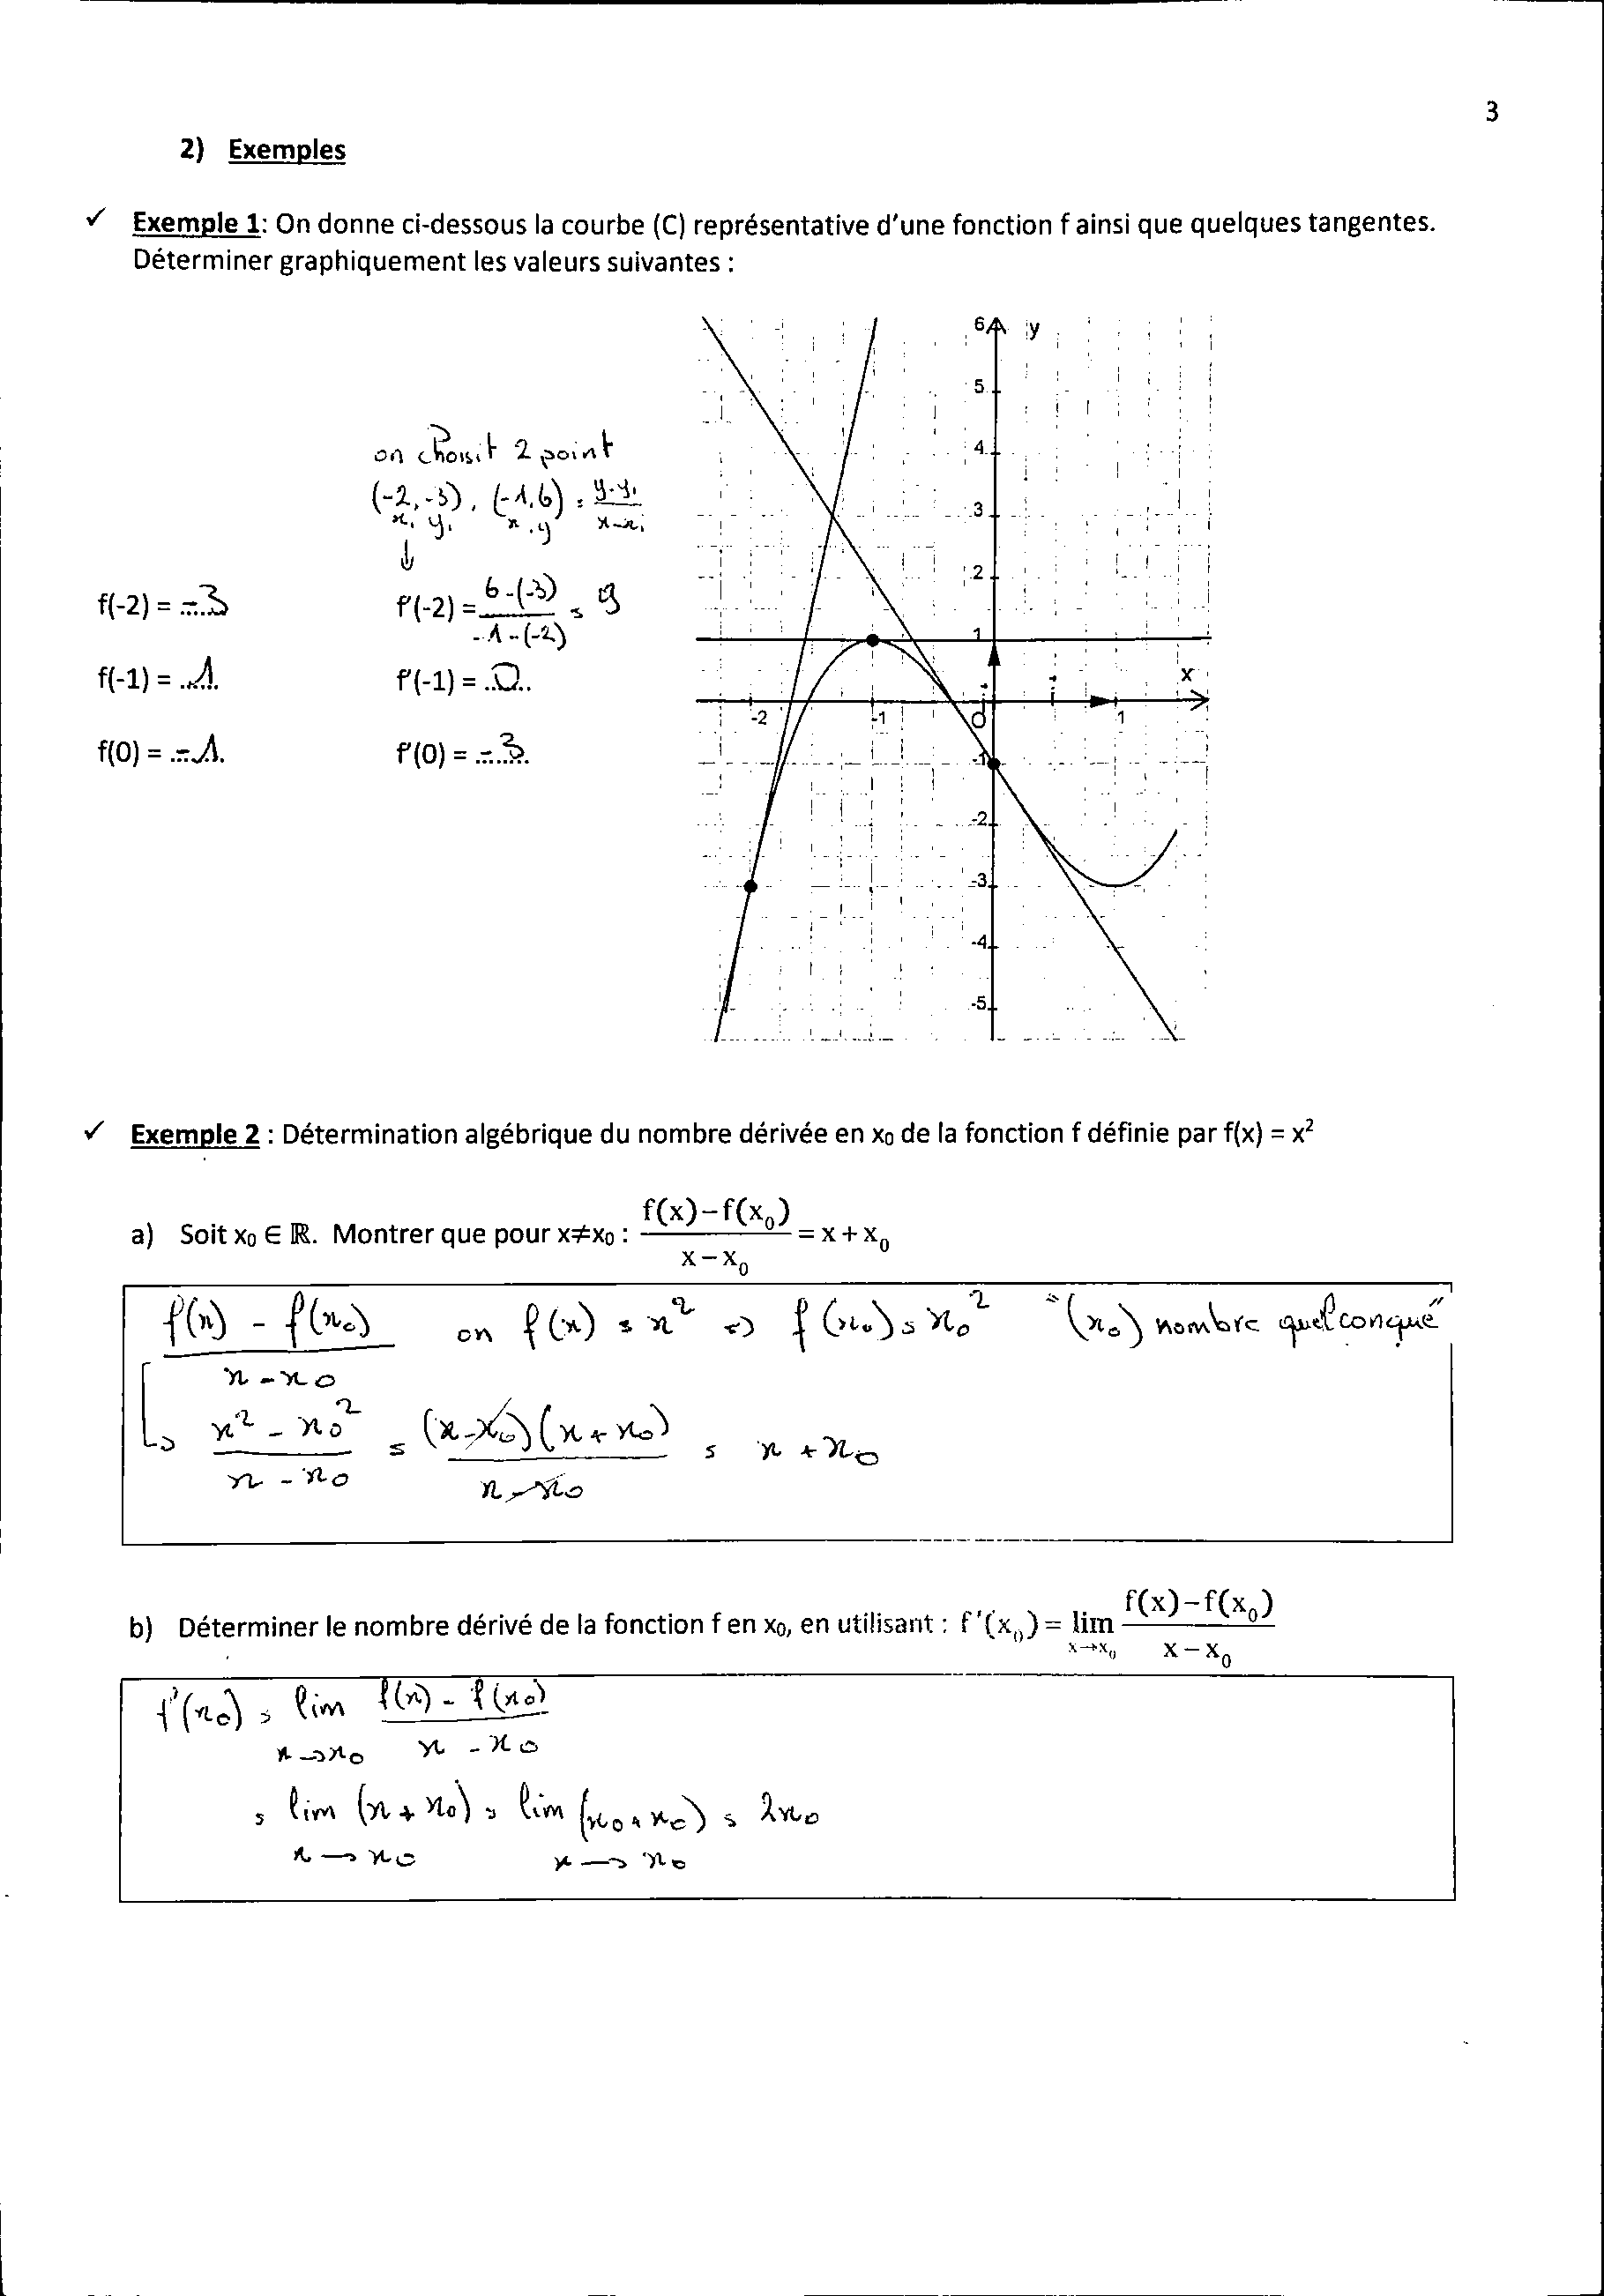 3
2) Exemples
✓ Exemple 1: On donne ci-dessous la courbe (C) représentative d'une fonction f ainsi que quelques tangentes.
Déterminer graphiquement les valeurs suivantes :
on choisit 2 point
(-2,-3), (-1,6) = (y-y₁)/(x-x₁)
x₁ y₁ x , y
↓
f(-2) = -3 f'(-2) = (6-(-3))/(-1-(-2)) = 9
f(-1) = 1 f'(-1) = 0
f(0) = -1 f'(0) = -3
6 y
5
4
3
2
1
j i x
-2 -1 O 1
-1
-2
-3
-4
-5
✓ Exemple 2 : Détermination algébrique du nombre dérivée en x₀ de la fonction f définie par f(x) = x²
a) Soit x₀ ∈ ℝ. Montrer que pour x≠x₀ : (f(x)−f(x₀))/(x−x₀) = x + x₀
(f(x) - f(x₀))/(x - x₀) on f(x) = x² ⇔ f(x₀) = x₀² "(x₀) nombre quelconque"
↳ (x² - x₀²)/(x - x₀) = ((x-x₀)(x+x₀))/(x-x₀) = x + x₀
b) Déterminer le nombre dérivé de la fonction f en x₀, en utilisant : f'(x₀) = lim x→x₀ (f(x)−f(x₀))/(x−x₀)
f'(x₀) = lim x→x₀ (f(x) - f(x₀))/(x - x₀)
= lim x→x₀ (x + x₀) = lim x→x₀ (x₀+x₀) = 2x₀